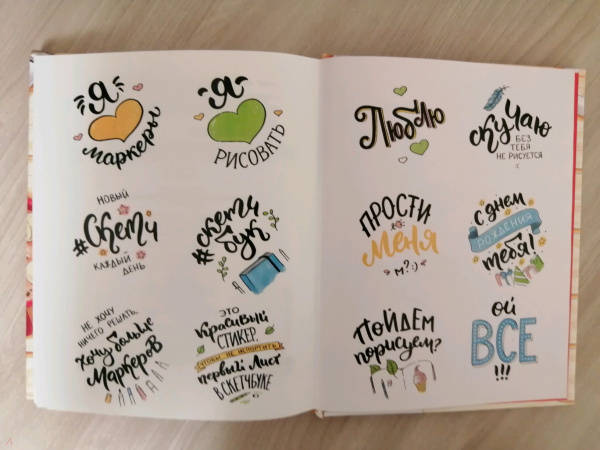 Я
маркеры
Я
РИСОВАТЬ
НОВЫЙ
#Скетч
КАЖДЫЙ
ДЕНЬ
#скетч
бук
НЕ ХОЧУ
НИЧЕГО РЕШАТЬ,
Хочу больше
Маркеров
ЭТО
Красивый
СТИКЕР,
ЧТОБЫ НЕ ИСПОРТИТЬ
первый Лист
В СКЕТЧБУКЕ
Люблю
скучаю
БЕЗ
ТЕБЯ
НЕ РИСУЕТСЯ
:(
ПРОСТИ
Меня
М? :)
С днем
РОЖДЕНИЯ
тебя!
Пойдём
порисуем?
ОЙ
ВСЕ
!!!